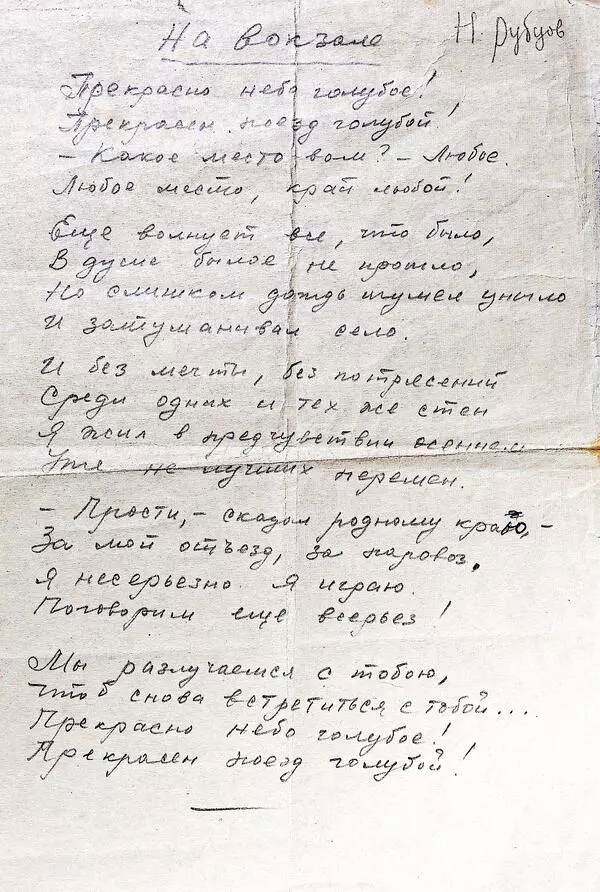 На вокзале
Н. Рубцов
Прекрасно небо голубое!
Прекрасен поезд голубой!
– Какое место вам? – Любое.
Любое место, край любой!
Еще волнует все, что было,
В душе былое не прошло,
Но слишком дождь шумел уныло
И затуманивал село.
И без мечты, без потрясений
Среди одних и тех же стен
Я жил в предчувствии осеннем
Уже не лучших перемен.
– Прости, – сказал родному краю, –
За мой отъезд, за паровоз,
Я несерьезно. Я играю.
Поговорим еще всерьез!
Мы разлучаемся с тобою,
Чтоб снова встретиться с тобой...
Прекрасно небо голубое!
Прекрасен поезд голубой!